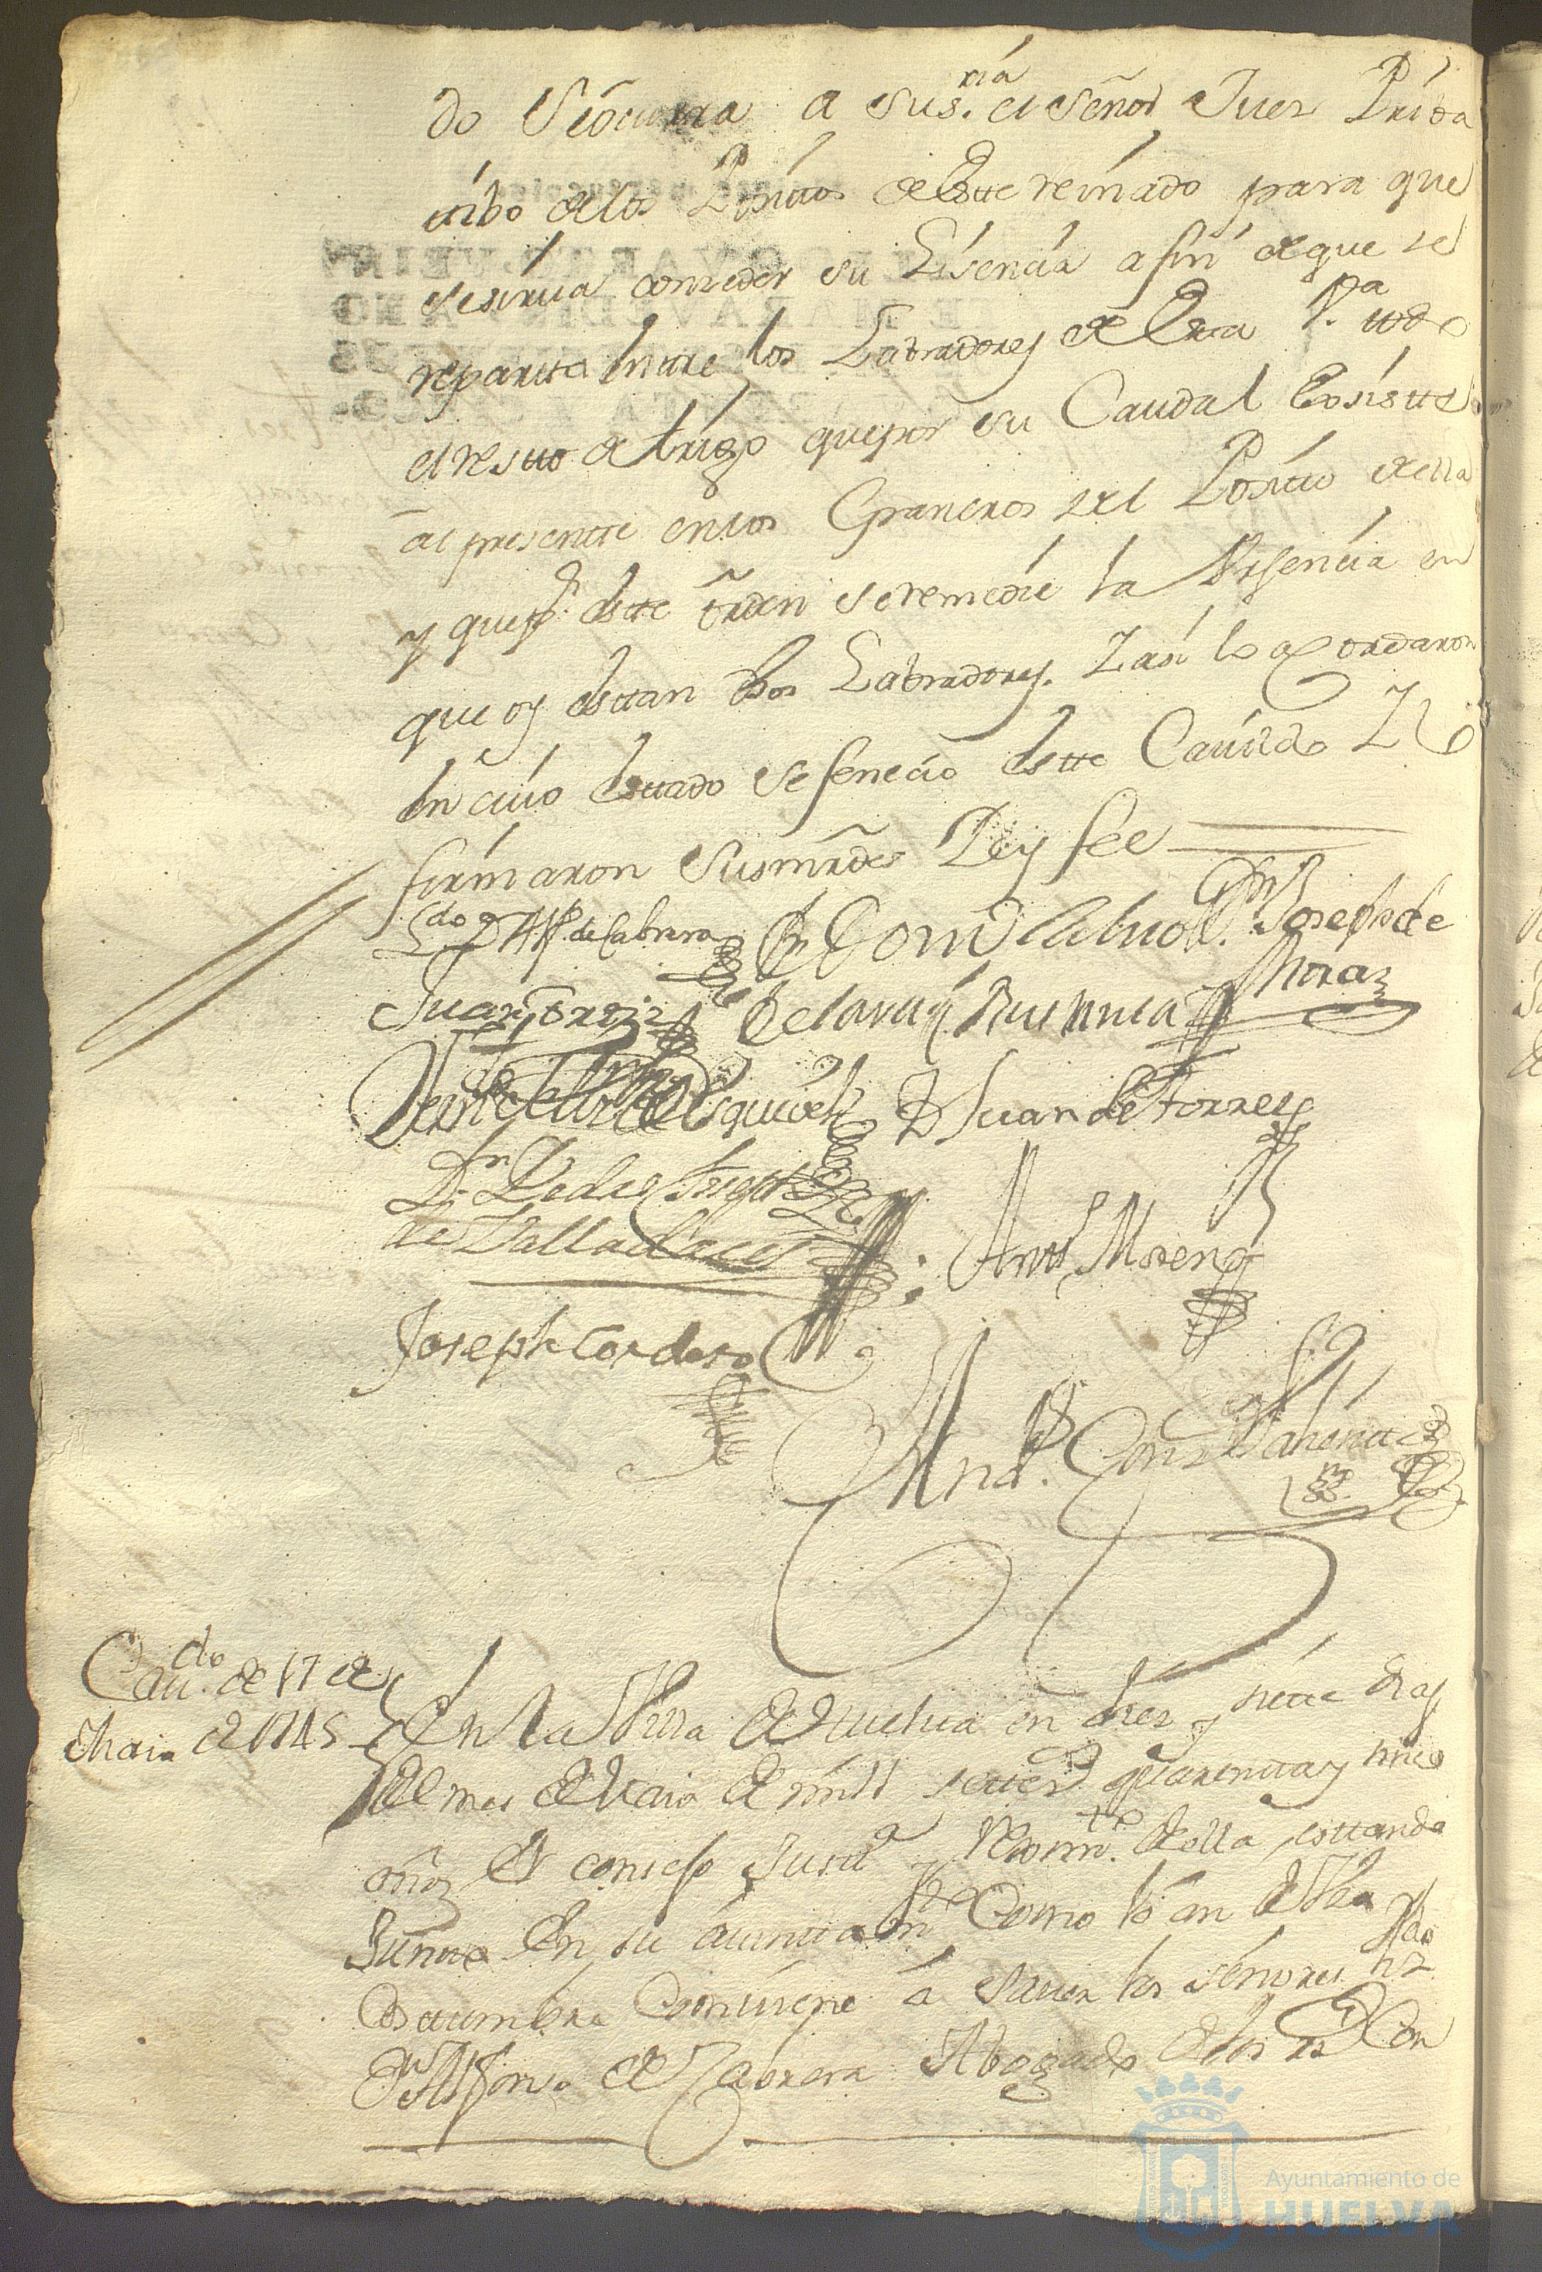 do Seocurra a Sus.ria el Señor Juez Priba
tibo de los Positos de Este reinado para que
se sirva conceder su Lisencia a fin de que se
reparta Entre los Labradores de Esta V.a todo
el resto de trigo que por su Caudal Exsiste
al presente en los Graneros del Posito de ella
y que p.r este orden se remedie la Vrsencia en
que oy estan dhos Labradores. Y asi lo acordaron
En cuio estado se fenecio este Cavildo Y lo
firmaron Susmrdes Doy fee
Ldo Dn Alfo de Cabrera Dn Joseph de
Mora
Juan
de Esquivel Dn Juan de Torres
Dn Pedro
de Valladares
Antt.o Moreno
Joseph Cordero
And.s
Cav.do de 17 de
Maio de 1745
En la Villa de Huelva en diez y siete dias
del mes de Maio de mill setez.s quarenta y sinco
años El consejo Justt.a y Reximi.to de ella estando
Junto En su aiuntam.to Como lo an de Vso y
Costumbre Combiene á saver los señores Lizdo
Dn Alfonso de Cabrera Abogado de los Rs Con
Ayuntamiento de
HUELVA